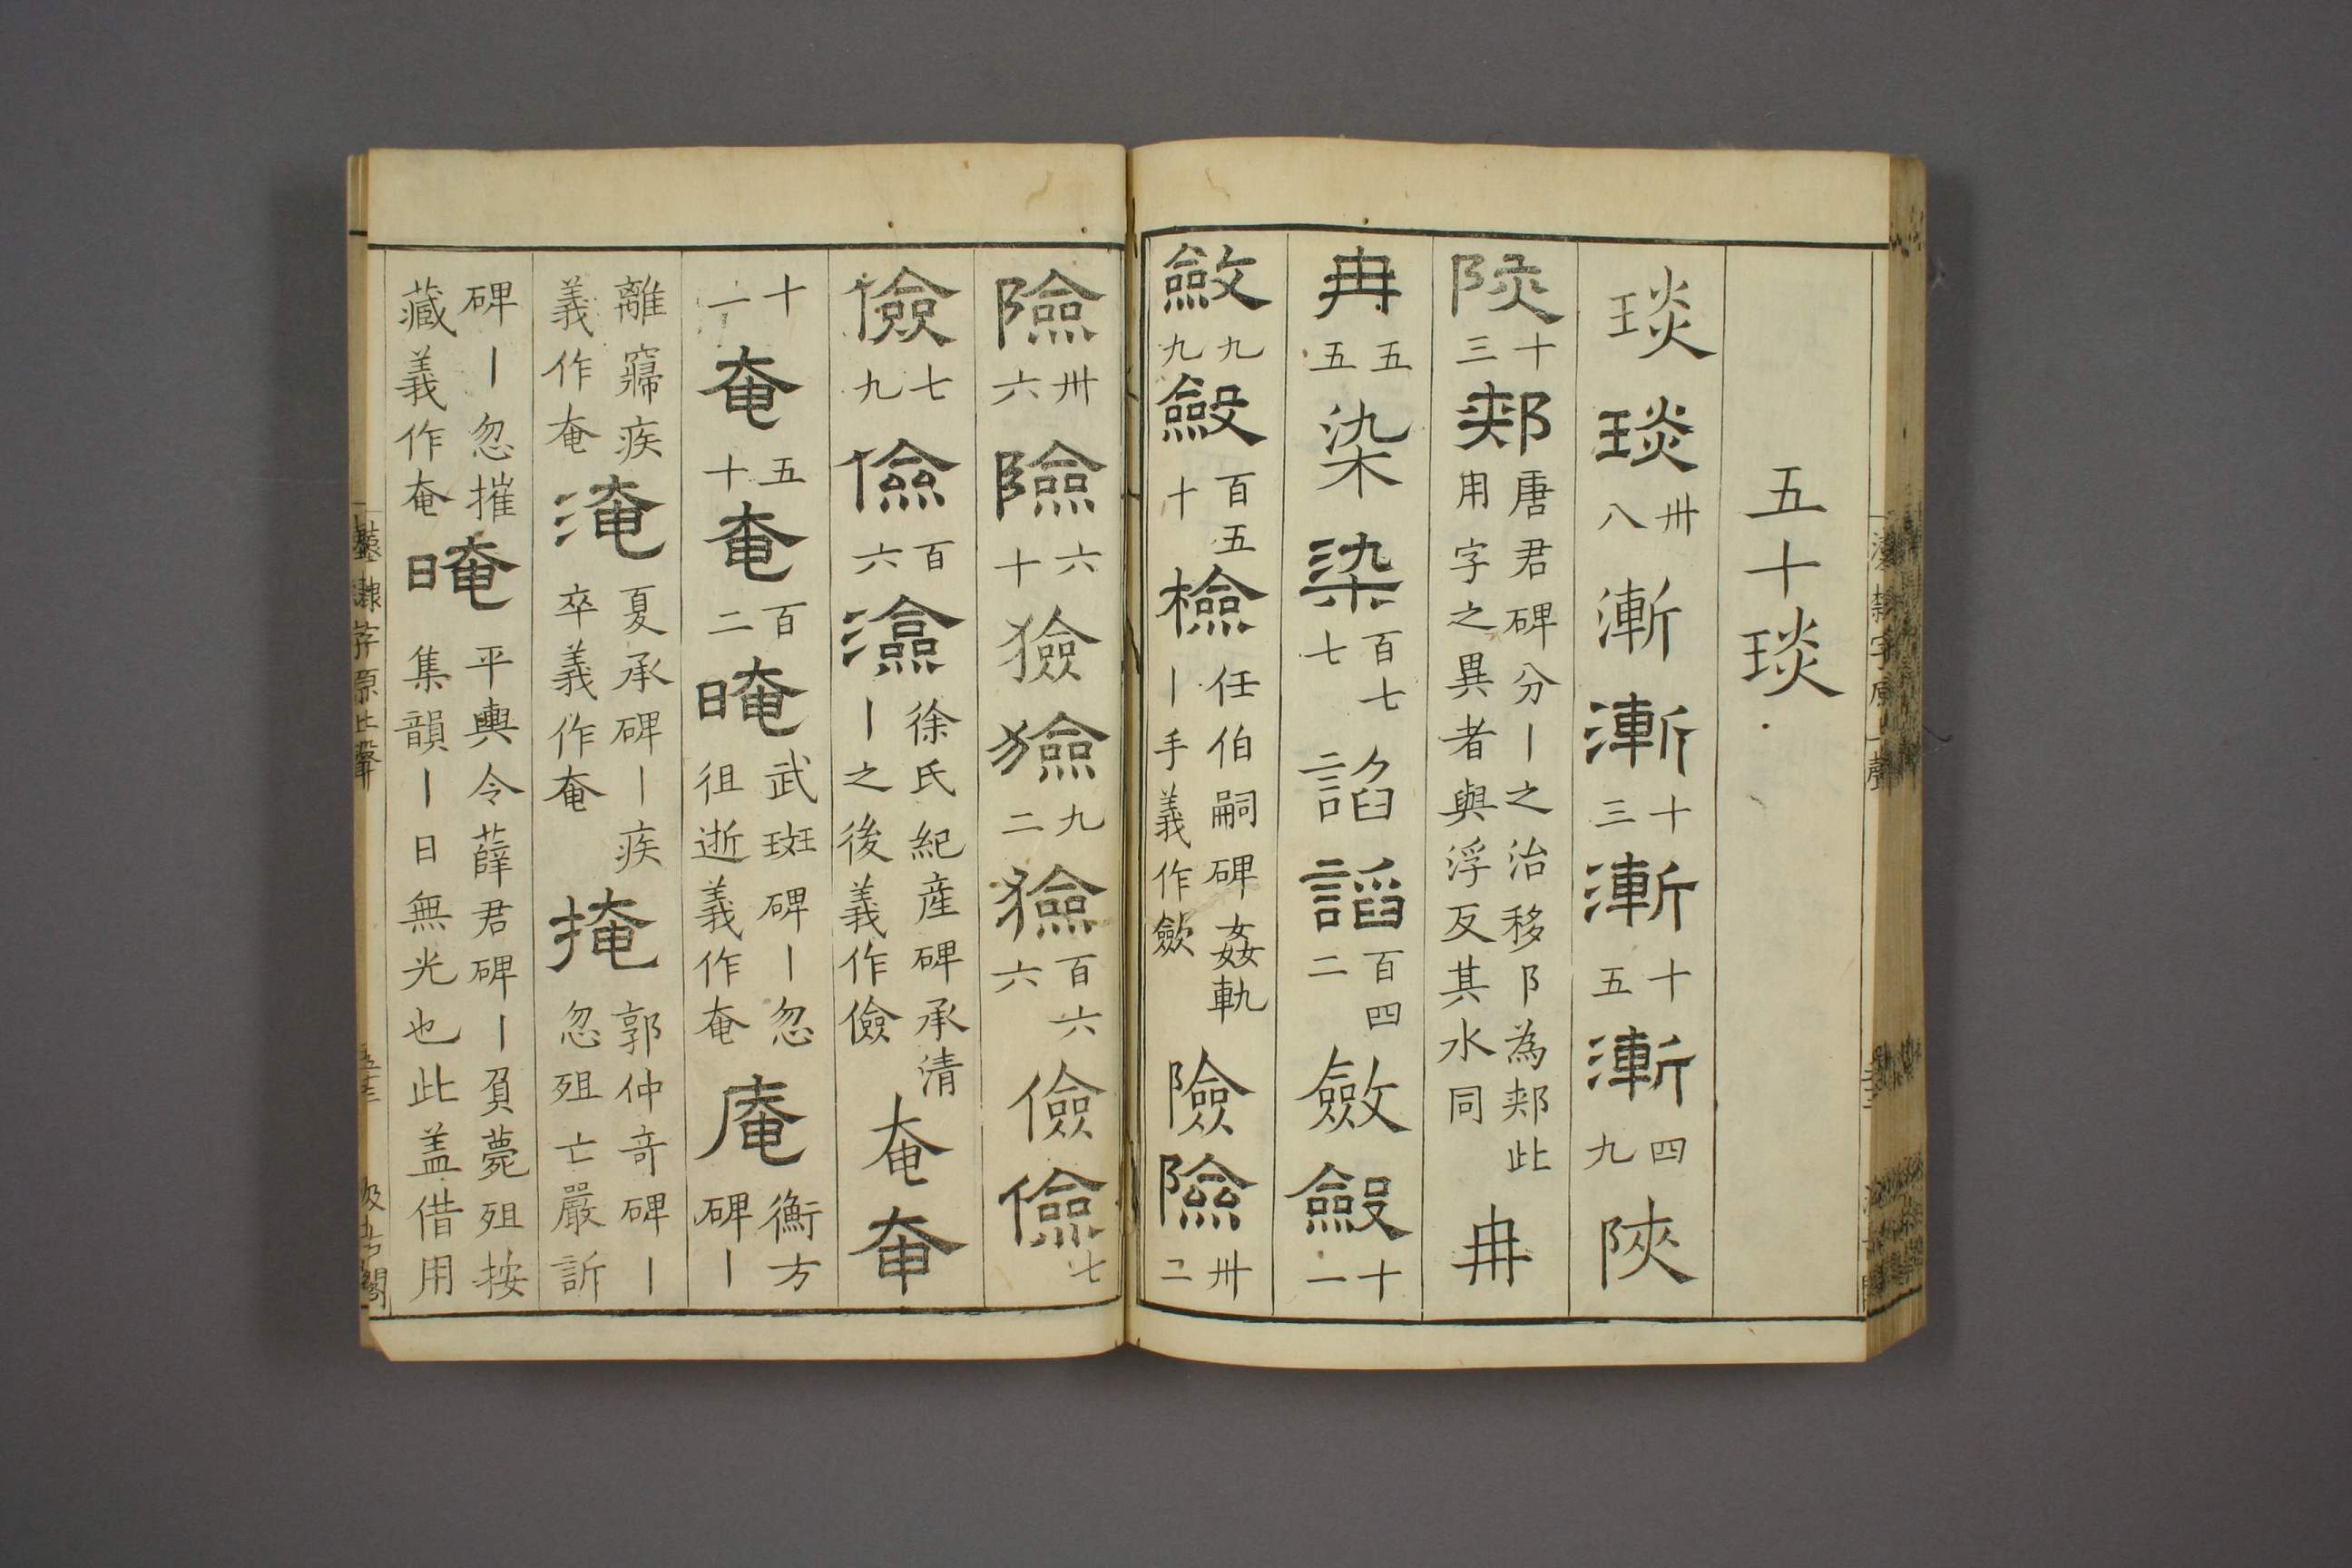 五十琰
琰 琰 卅八 漸 漸 十三 漸 十五 漸 四九 陝
陝 十三 郟 唐君碑分丨之治移阝為郟此用字之異者與浮叐其水同 冉
冉 五五 染 染 百七七 諂 諂 百四二 斂 斂 十一
斂 九九 斂 百五十 檢 任伯嗣碑姦軌丨手義作歛 險 險 卅二
險 卅六 險 六十 獫 獫 九二 獫 百六六 儉 儉 七
儉 七九 儉 百六 濕 徐氏紀産碑承清丨之後義作儉 奄 奄
十一 奄 五十 奄 百二 晻 武斑碑丨忽徂逝義作奄 庵 衡方碑丨
離寢疾義作奄 淹 夏承碑丨疾卒義作奄 掩 郭仲奇碑丨忽殂亡嚴訢
碑丨忽摧藏義作奄 晻 平輿令薛君碑丨負薨殂按集韻丨日無光也此盖借用